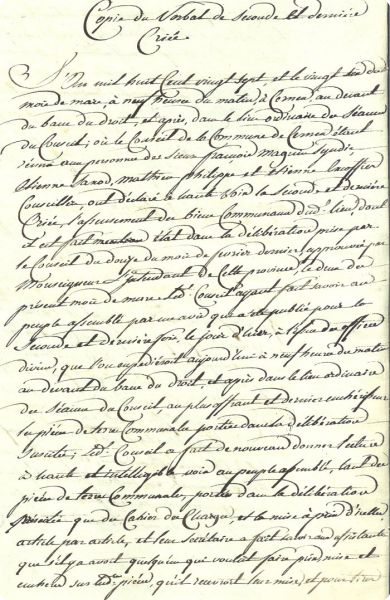 Copie du Verbal de Seconde et dernière
Criée
L'an mil huit Cent vingt sept et le vingt six du
mois de mars, à neuf heures du matin, à Cernex, au devant
du banc du droit, et après, dans le lieu ordinaire des Séances
du Conseil; où le Conseil de la Commune de Cernex étant
réuni aux personnes des Sieurs françois Magnin Syndic,
Etienne Tanod, mathieu philippe et Etienne
Conseillers, ont déclaré à haute voix la Seconde et dernière
Criée, l'affensement des biens Communaux dud.t lieu, dont
il est fait mention état dans la délibération prise par
le Conseil du douze du mois de fevrier dernier, approuvée par
Monseigneur Intendant de Cette province, le deux du
présent mois de mars led.t Conseil ayant fait savoir au
peuple assemblé par un avis que a été publié pour la
Seconde et dernière fois, le jour d'hier, à l'issue des offices
divins, que l'on expédieroit aujourd'hui à neuf heures du matin
au devant du banc du droit, et après dans le lieu ordinaire
des Séances du Conseil, au plus offrant et dernier enchérisseur
les pièces de terre Communales portées dans la délibération
susdite; led.t Conseil a fait de nouveau donner lecture
à haute et intelligible voix au peuple assemblé, tant des
pièces de terres Communales, portées dans la délibération
précitée que du Cahier des Charges, et la mise à prix d'icelles
article par article, et leur Secrétaire a fait savoir aux assistants
que s'il y avoit quelqu'un qui voulut faire prix, mise et
enchère sur lesd.tes pièces, qu'il recevroit leur mise, et pour tirer